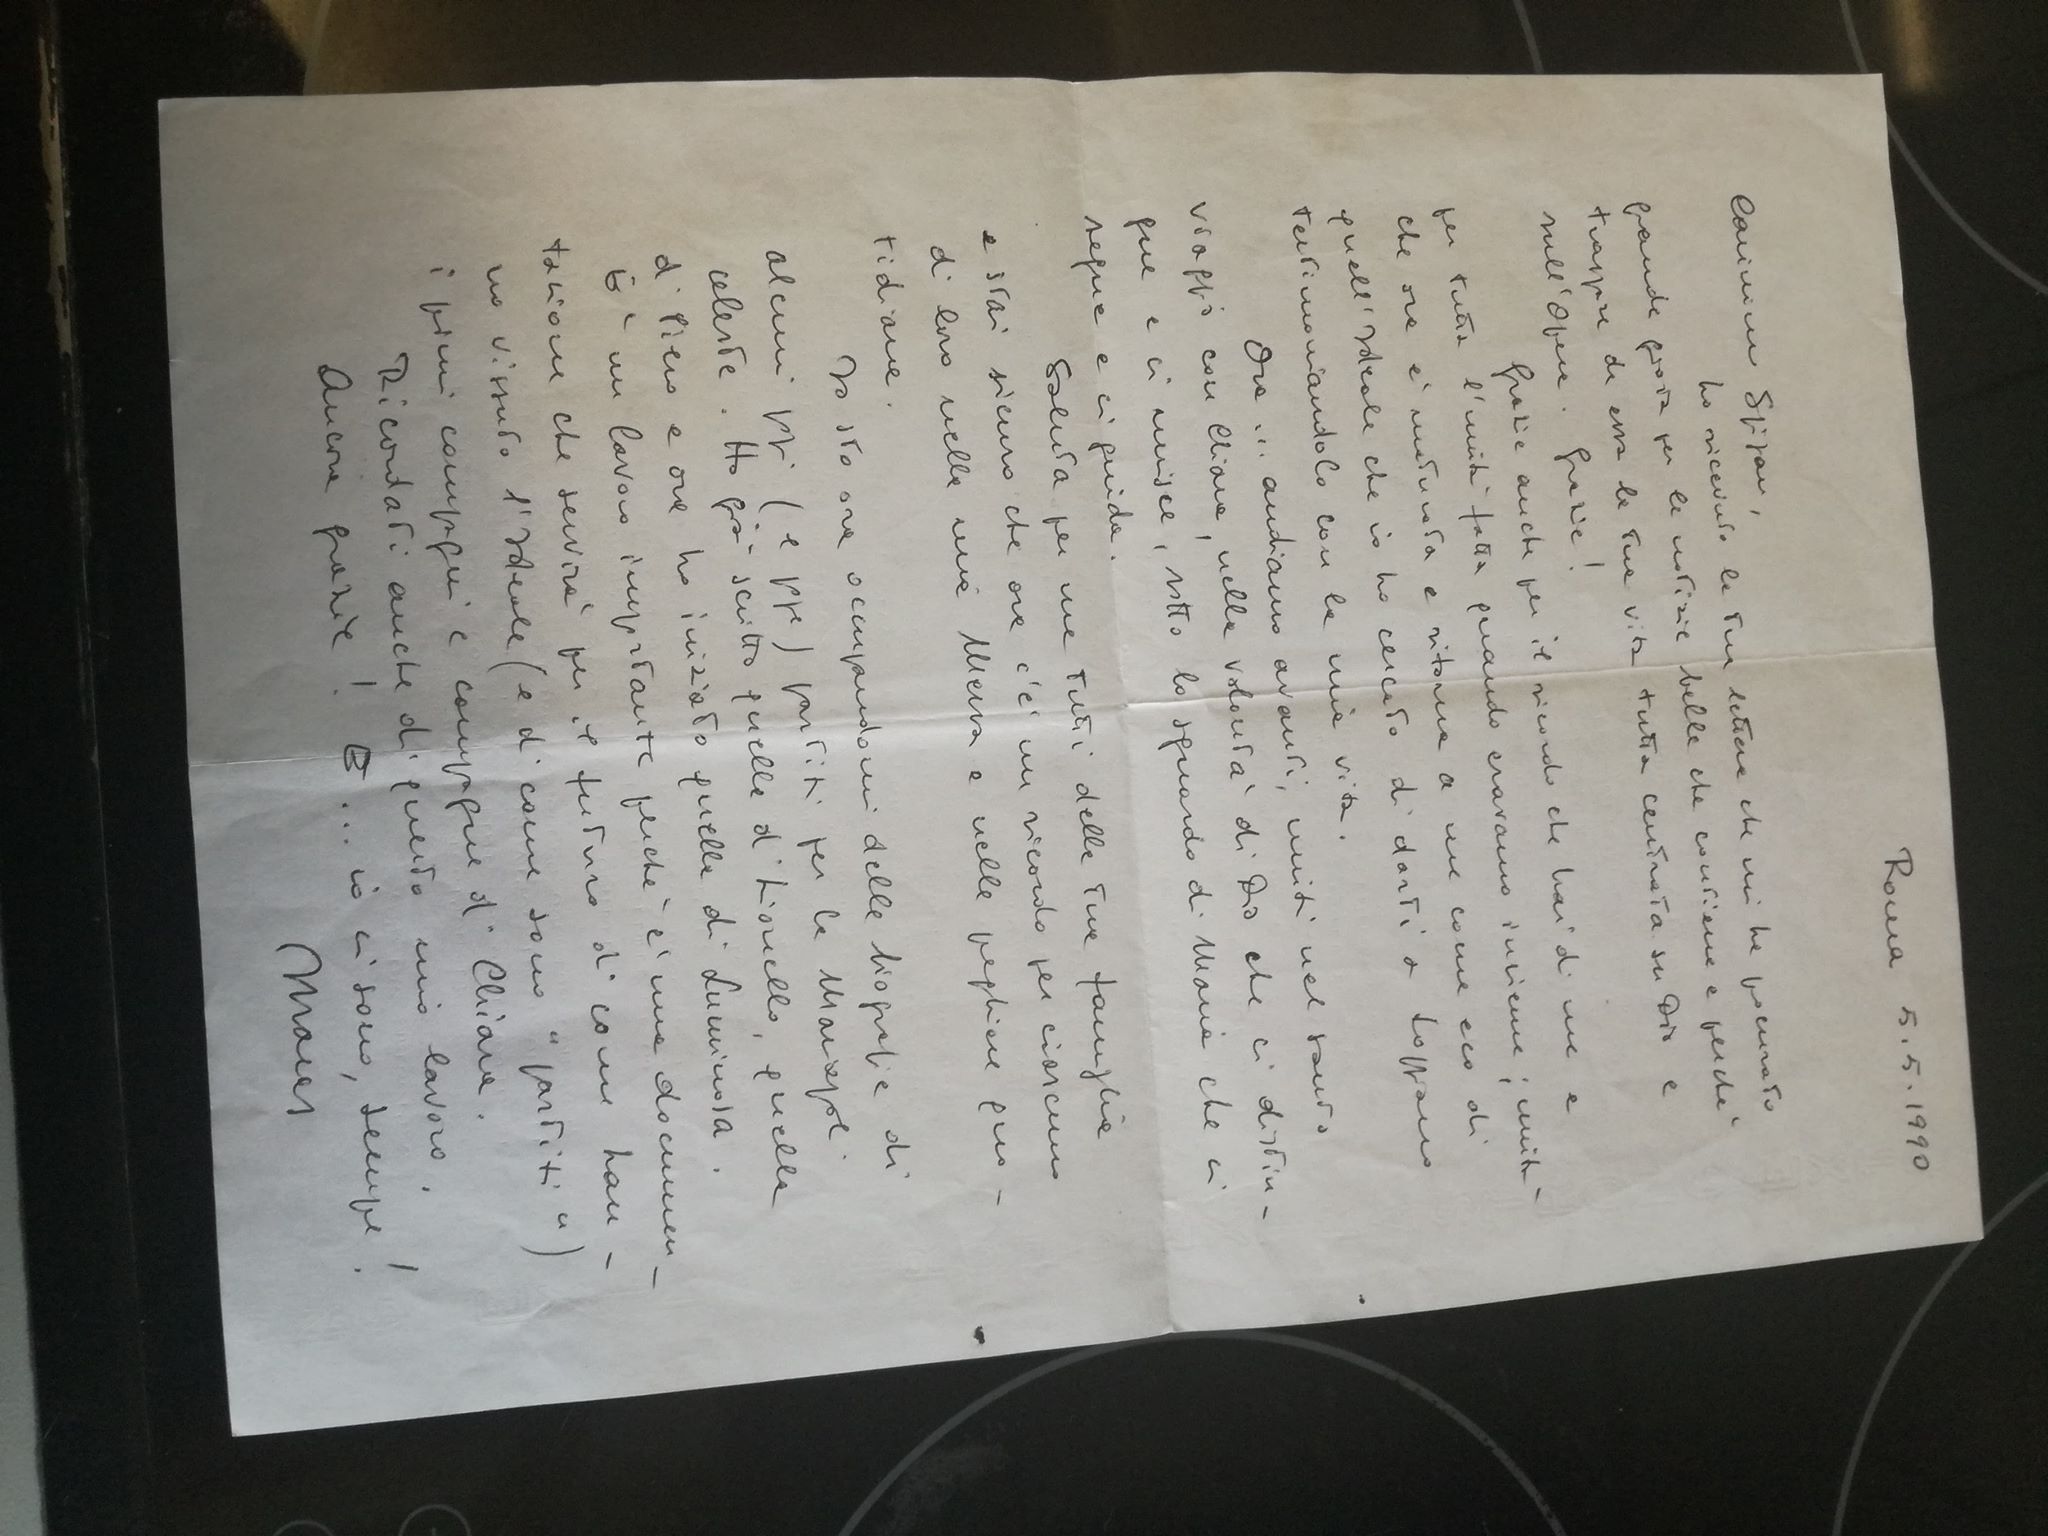 Roma 5.5.1990
Carissimo
ho ricevuto la tua lettera che mi ha procurato
grande gioia per le notizie belle che contiene e perché
traspare da essa la tua vita tutta centrata su Dio e
sull'Opera. Grazie!
Grazie anche per il ricordo che hai di me e
per tutta l'unità fatta quando eravamo insieme; unità
che ora è maturata e ritorna a me come eco di
quell'Ideale che io ho cercato di darti a Loppiano
testimoniandolo con la mia vita.
Ora... andiamo avanti, uniti nel santo
viaggio con Chiara, nella volontà di Dio che ci distin-
gue e ci unisce, sotto lo sguardo di Maria che ci
segue e ci guida.
Saluta per me tutti della tua famiglia
e stai sicuro che ora c'è un ricordo per ciascuno
di loro nella mia Messa e nelle preghiere quo-
tidiane.
Io sto ora occupandomi delle biografie di
alcuni ppi (e ppe) partiti per la Mariapoli
celeste. Ho già scritto quella di Lionello, quella
di Piero e ora ho iniziato quella di Luminosa.
È un lavoro importante perché è una documen-
tazione che servirà per il futuro di come han-
no vissuto l'Ideale (e di come sono "partiti")
i primi compagni e compagne di Chiara.
Ricordati anche di questo mio lavoro!
Ancora grazie! E... io ci sono, sempre!